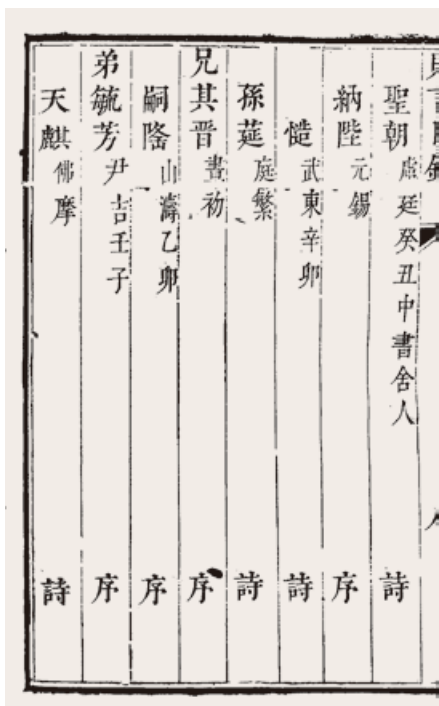 聖朝虞廷癸丑中書舍人 詩
納陛元錫 序
慥武東辛卯 詩
孫莚庭繁 詩
兄其晉晝初 序
嗣隆山濤乙卯 序
弟毓芳尹吉壬子 序
天麒佛摩 詩